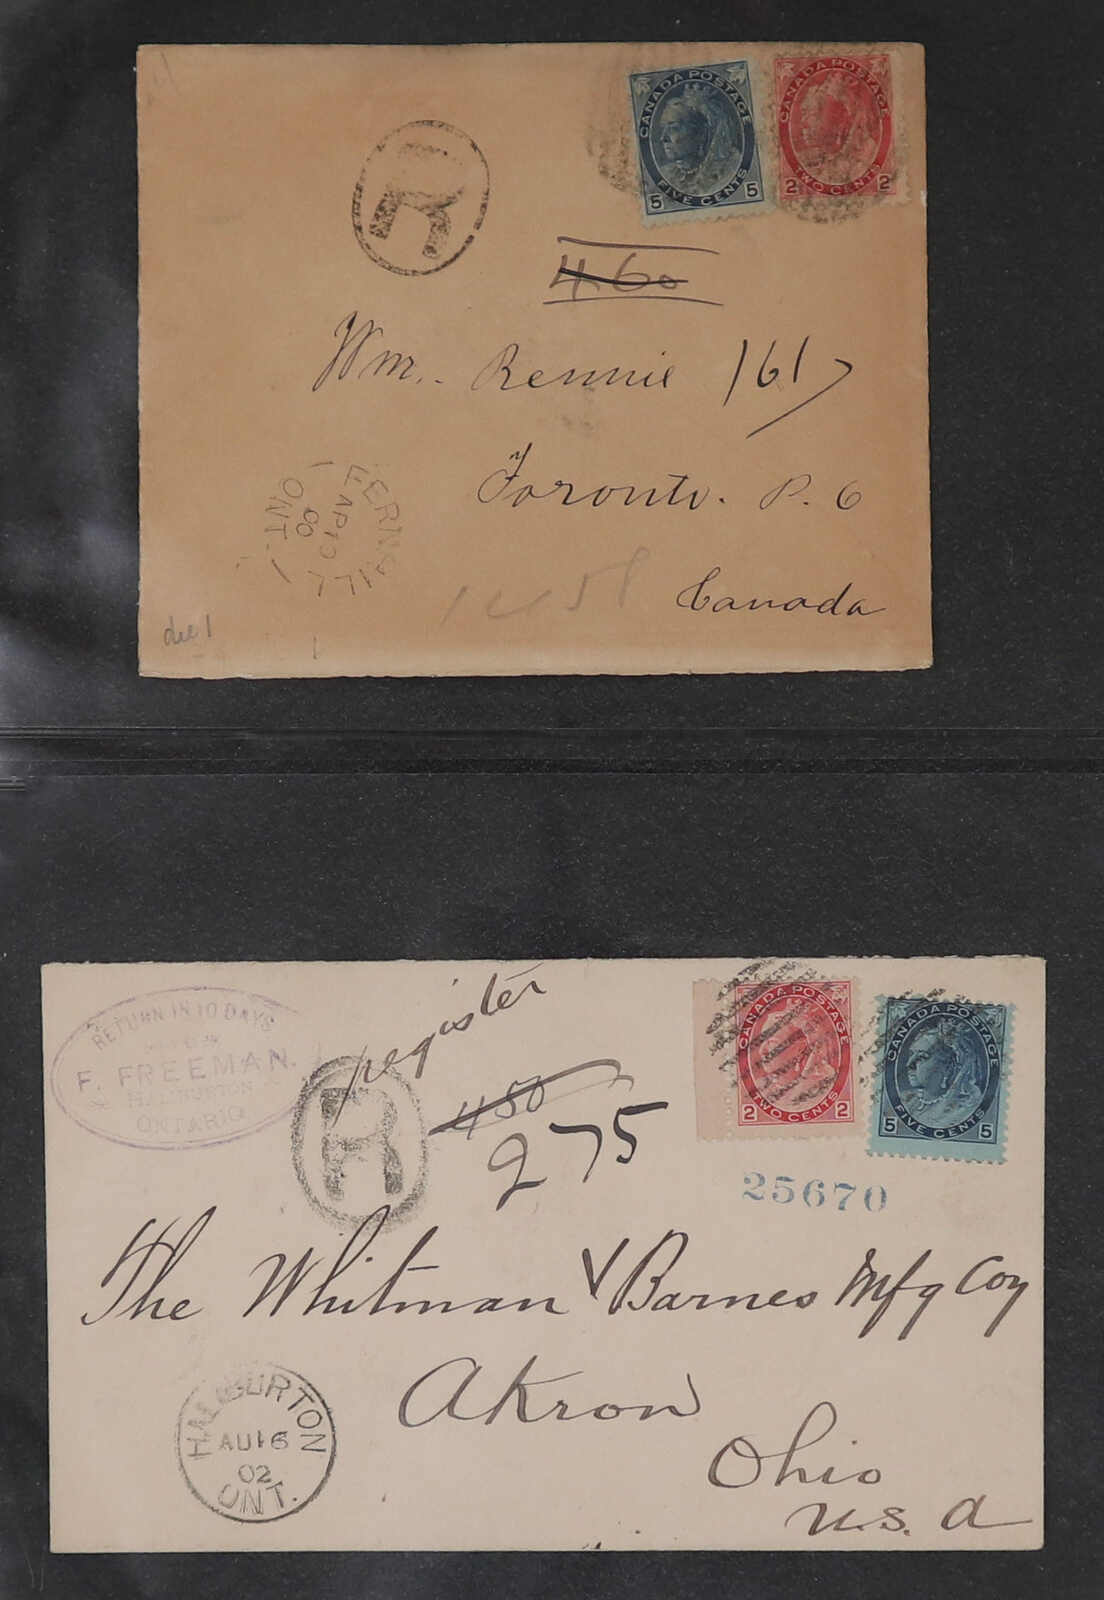 CANADA POSTAGE
5 FIVE CENTS 5
CANADA POSTAGE
2 TWO CENTS 2
R
4 60
Wm. Rennie 1617
Toronto. P. O
Canada
FERNGILL
AP 10
00
ONT.
die 1
register
RETURN IN 10 DAYS
F. FREEMAN.
HALIBURTON
ONTARIO
R
4 50
275
CANADA POSTAGE
2 TWO CENTS 2
CANADA POSTAGE
5 FIVE CENTS 5
25670
The Whitman & Barnes Mfg Coy
Akron
Ohio
U.S. A
HALIBURTON
AU 16
02
ONT.